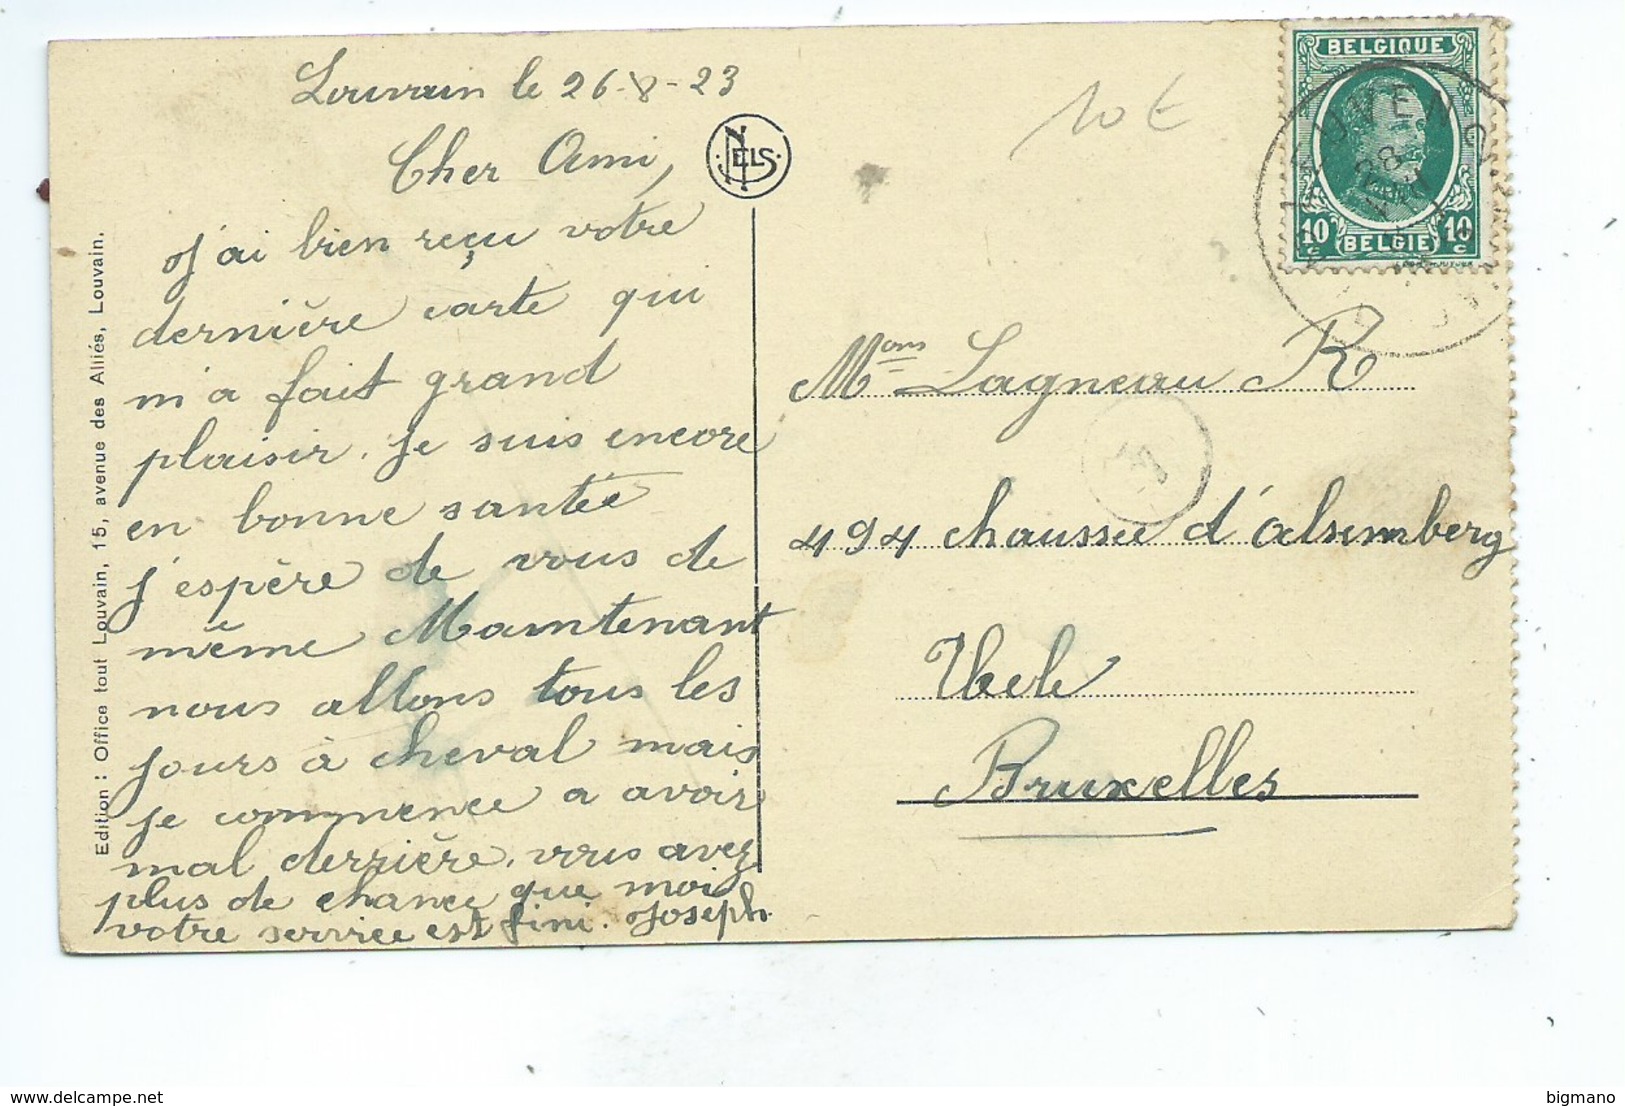 Louvain le 26-8-23
Cher Ami,
J'ai bien reçu votre
dernière carte qui
m'a fait grand
plaisir. je suis encore
en bonne santée
j'espère de vous de
même Maintenant
nous allons tous les
jours à cheval mais
je commence a avoir
mal derrière. vous avez
plus de chance que moi
votre service est fini. Joseph.
NELS
Edition : Office tout Louvain, 15, avenue des Alliés, Louvain.
10 €
BELGIQUE
10 c BELGIE 10 c
LEUVEN
28
Mons Lagneau R
494 chaussée d'alsemberg
Ucele
Bruxelles
bigmano